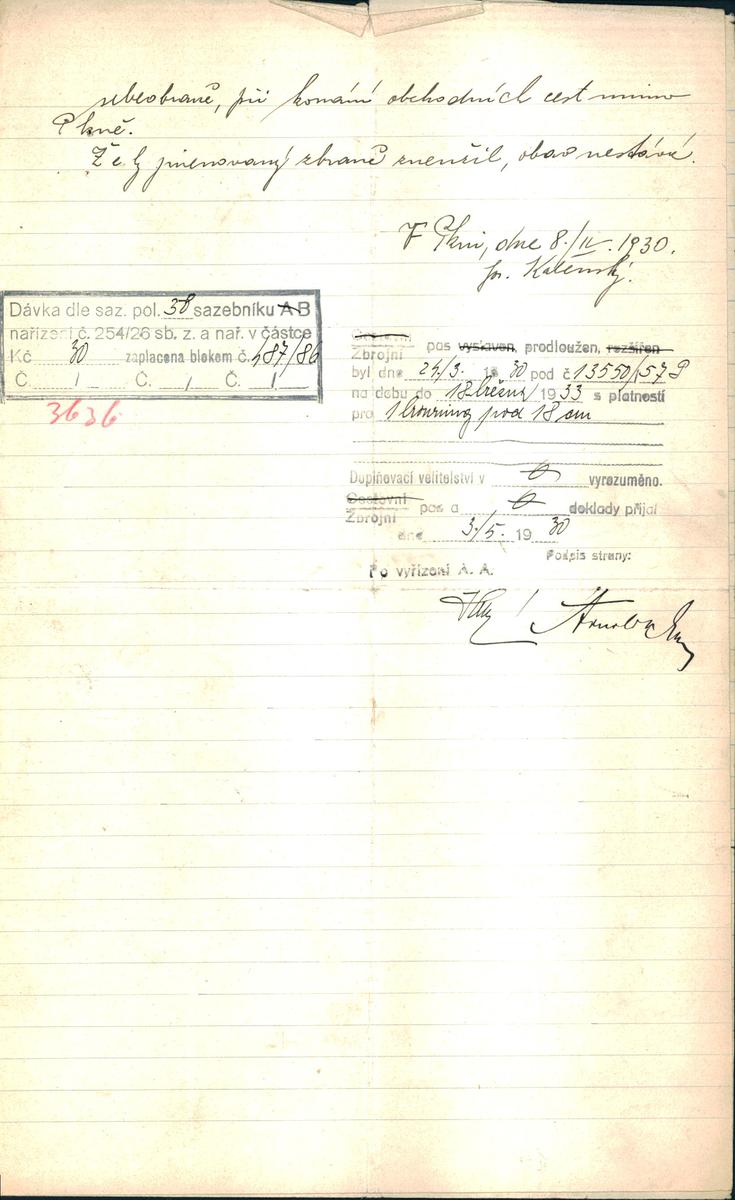 sebeobraně, při konání obchodních cest mimo
Plzně.
Že by jmenovaný zbraně zneužil, obav nestává.
V Plzni, dne 8./IV. 1930.
Dávka dle saz. pol. 38 sazebníku A B
nařízení č. 254/26 sb. z. a nař. v částce
Kč 30 zaplacena blokem č. 487/86
Č. / Č. / Č. /
3636
Cestovní
Zbrojní pas vystaven, prodloužen, rozšířen
byl dne 24/3. 1930 pod č. 13550/
na dobu do 18 března 1933 s platností
pro 1 browning pod 18 cm
Doplňovací velitelství v 0 vyrozuměno.
Cestovní
Zbrojní pas a 0 doklady přijal
dne 3/5. 1930
Podpis strany:
Po vyřízení A. A.